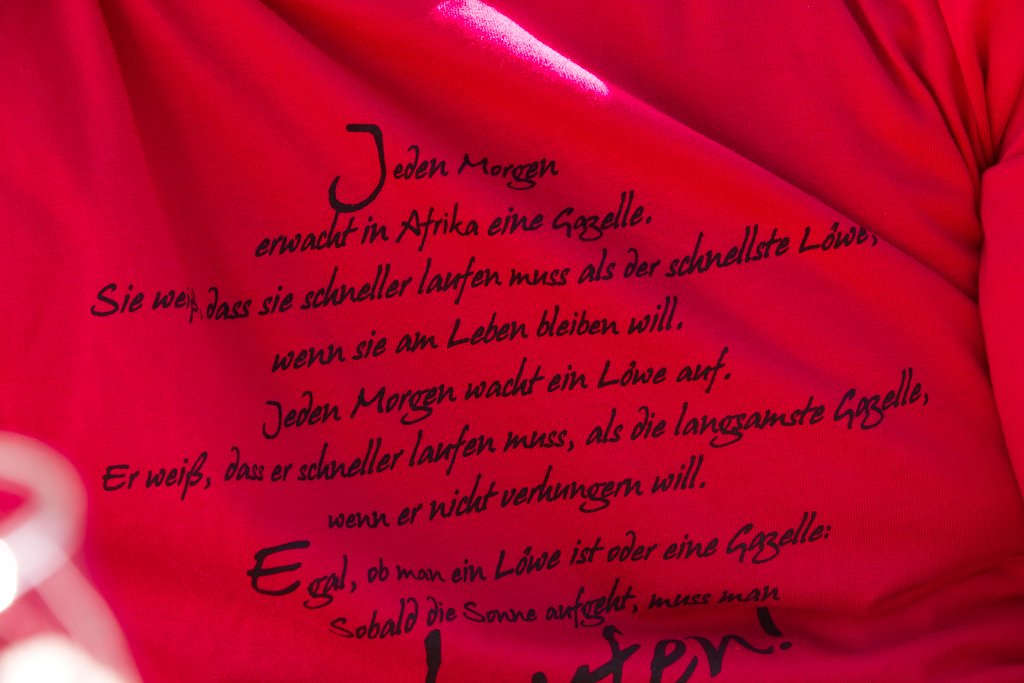 Jeden Morgen
erwacht in Afrika eine Gazelle.
Sie weiß, dass sie schneller laufen muss als der schnellste Löwe,
wenn sie am Leben bleiben will.
Jeden Morgen wacht ein Löwe auf.
Er weiß, dass er schneller laufen muss, als die langsamste Gazelle,
wenn er nicht verhungern will.
Egal, ob man ein Löwe ist oder eine Gazelle:
Sobald die Sonne aufgeht, muss man
laufen!